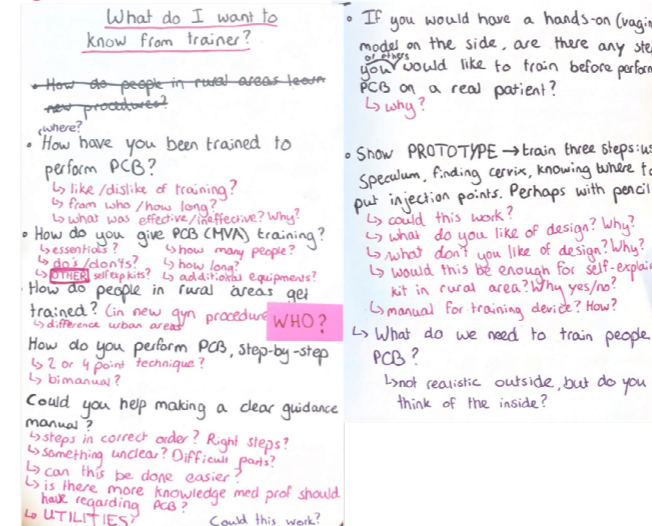 What do I want to
know from trainer?
• How do people in rural areas learn
new procedures?
(where?
• How have you been trained to
perform PCB?
↳ like/dislike of training?
↳ from who/how long?
↳ what was effective/ineffective? Why?
• How do you give PCB (MVA) training?
↳ essentials? ↳ how many people?
↳ do's/don'ts? ↳ how long?
↳ OTHER self exp kits? ↳ additional equipments?
• How do people in rural areas get
trained? (in new gyn procedure
↳ difference urban areas
WHO?
How do you perform PCB, step-by-step
↳ 2 or 4 point technique?
↳ bimanual?
Could you help making a clear guidance
manual?
↳ steps in correct order? Right steps?
↳ something unclear? Difficult parts?
↳ can this be done easier?
↳ is there more knowledge med prof should
have regarding PCB?
↳ UTILITIES?
Could this work?
• If you would have a hands-on (vagin
model on the side, are there any ste
or others
you would like to train before perform
PCB on a real patient?
↳ why?
• Show PROTOTYPE → train three steps: us
Speculum, finding cervix, knowing where to
put injection points. Perhaps with pencil
↳ could this work?
↳ what do you like of design? Why?
↳ what don't you like of design? Why?
↳ would this be enough for self-explai
kit in rural area? Why yes/no?
↳ manual for training device? How?
↳ What do we need to train people
PCB?
↳ not realistic outside, but do you
think of the inside?